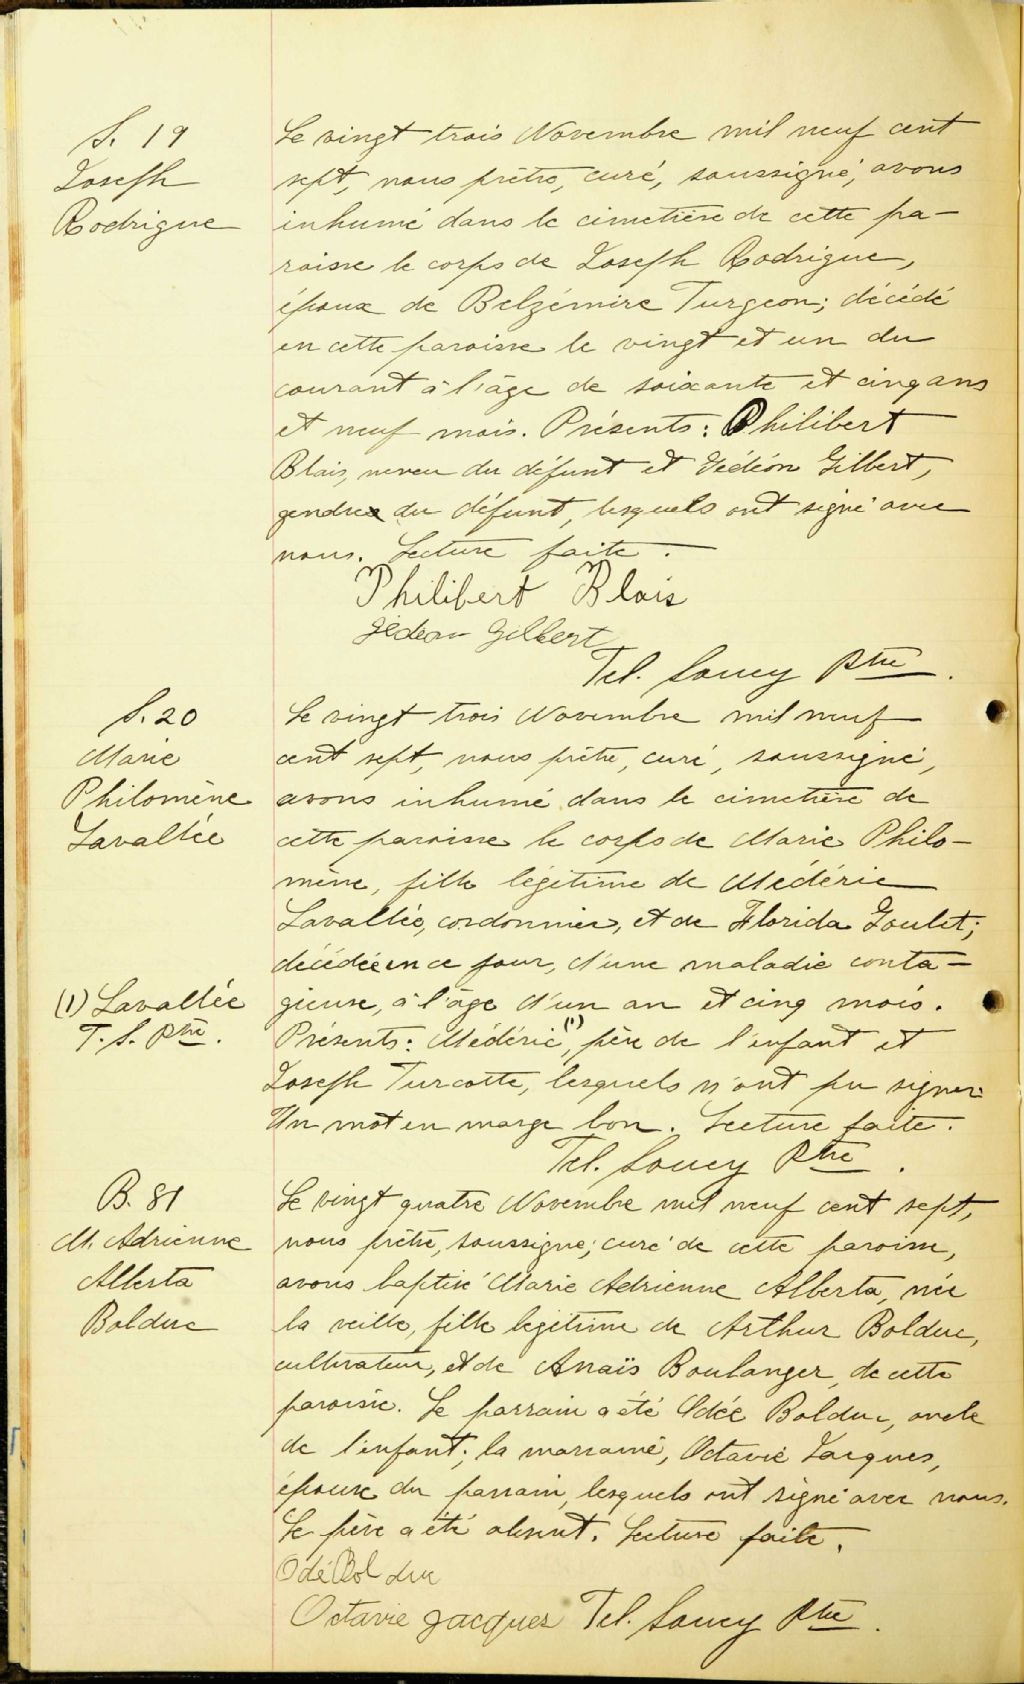 S. 19
Joseph
Rodrigue
Le vingt trois Novembre mil neuf cent
sept, nous prêtre, curé, soussigné, avons
inhumé dans le cimetière de cette pa-
roisse le corps de Joseph Rodrigue,
époux de Belzémire Turgeon; décédé
en cette paroisse le vingt et un du
courant à l'âge de soixante et cinq ans
et neuf mois. Présents: Philibert
Blais, neveu du défunt et Gédéon Gilbert,
gendre du défunt, lesquels ont signé avec
nous. Lecture faite.
Philibert Blais
Gédeon Gilbert
Tel. Soucy Ptre.
S. 20
Marie
Philomène
Lavallée
Le vingt trois Novembre mil neuf
cent sept, nous prêtre, curé, soussigné,
avons inhumé dans le cimetière de
cette paroisse le corps de Marie Philo-
mène, fille légitime de Médéric
Lavallée, cordonnier, et de Florida Goulet;
décédée en ce jour, d'une maladie conta-
gieuse, à l'âge d'un an et cinq mois.
Présents: Médéric (1), père de l'enfant et
Joseph Turcotte, lesquels n'ont pu signer.
Un mot en marge bon. Lecture faite.
(1) Lavallée
T. S. Ptre.
Tel. Soucy Ptre.
B. 81
M. Adrienne
Alberta
Bolduc
Le vingt quatre Novembre mil neuf cent sept,
nous prêtre, soussigné, curé de cette paroisse,
avons baptisé Marie Adrienne Alberta, née
la veille, fille légitime de Arthur Bolduc,
cultivateur, et de Anaïs Boulanger, de cette
paroisse. Le parrain a été Odée Bolduc, oncle
de l'enfant; la marraine, Octavie Jacques,
épouse du parrain, lesquels ont signé avec nous.
Le père a été absent. Lecture faite.
Odé Bolduc
Octavie Jacques Tel. Soucy Ptre.